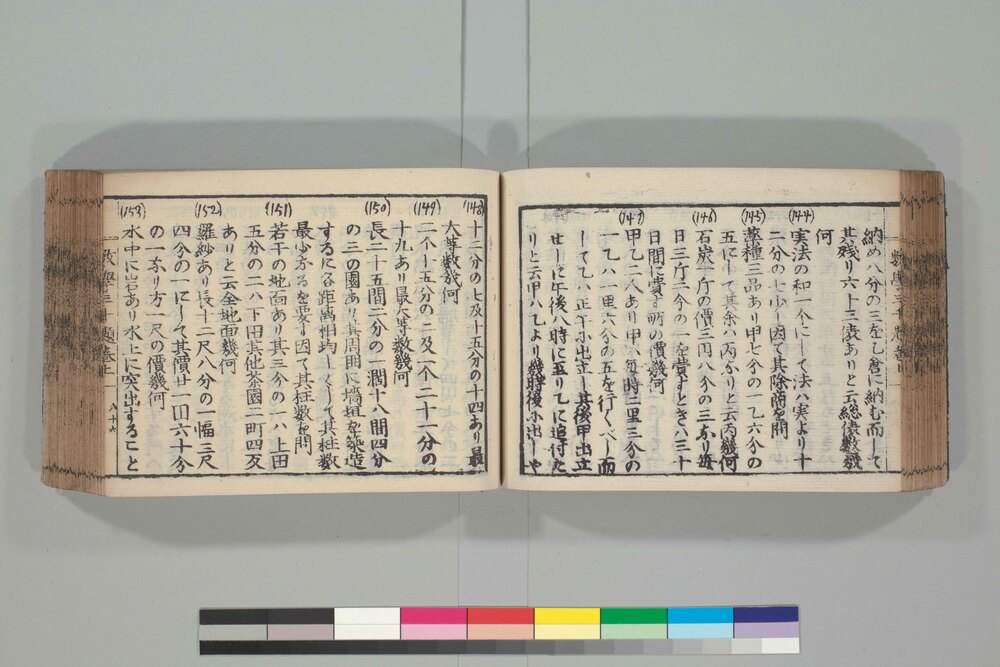 納め八分の三を乙倉に納む而して
其残り六十三俵ありと云総俵数幾
何
(144)
実法の和一个にして法ハ実より十
二分の七少し因て其除商を問
(145)
薬種三品あり甲七分の一乙六分の
五にして其余ハ丙なりと云丙幾何
(146)
石炭一斤の價三円八分の三なり毎
日三斤二分の一を賣るときハ三十
日間に賣る所の價幾何
(147)
甲乙二人あり甲ハ毎時二里三分の
一乙ハ一里六分の五を行くべし而
して乙ハ正午に出立し其後甲出立
せしに午後八時に至り乙に追付た
りと云甲ハ乙より幾時後に出しや
(148)
十二分の七及十五分の十四あり最
大等数幾何
(149)
二个十五分の二及八个二十一分の
十九あり最大等数幾何
(150)
長二十五間二分の一濶十八間四分
の三の園あり其周囲に墻垣を築造
するに各距离相均しくして其柱数
最少なるを要す因て其柱数を問
(151)
若干の地面あり其三分の一ハ上田
五分の二ハ下田其他茶園二町四反
ありと云全地面幾何
(152)
羅紗あり長十二尺八分の一幅三尺
四分の一にして其價廿一円六十分
の一なり方一尺の價幾何
(153)
水中に岩あり水上に突出すること
八十六